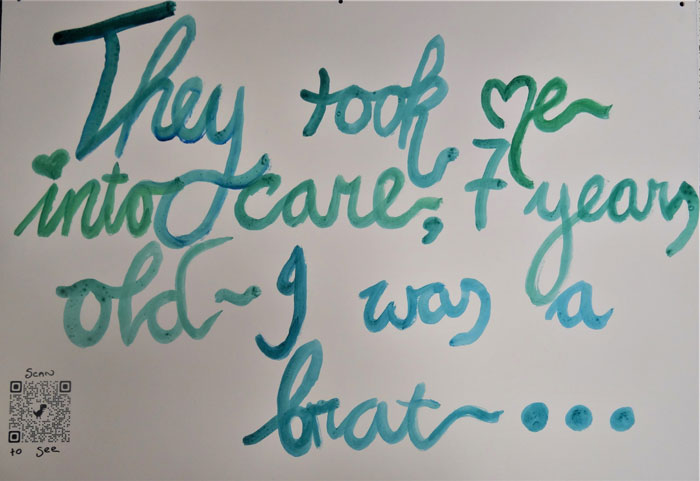 They took me
into care, 7 years
old~I was a
brat...
SCAN
to See